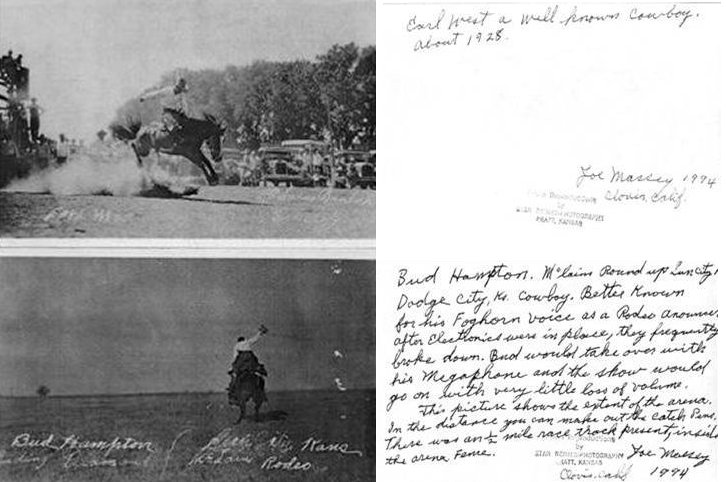 Earl West a well known Cowboy.
about 1928.
Joe Massey 1994
Clovis, Calif.
STAR PHOTOGRAPHY
PRATT, KANSAS
Earl West
Bud Hampton. McLains Round up Sun City,
Dodge City, Ks. Cowboy. Better Known
for his Foghorn voice as a Rodeo Announcer.
after Electronics were in place, they frequently
broke down. Bud would take over with
his Megaphone and the show would
go on with very little loss of volume.
This picture shows the extent of the arena.
In the distance you can make out the catch Pens,
There was an ½ mile race track present, inside
the arena Fence.
Joe Massey
1994
STAR PHOTOGRAPHY
PRATT, KANSAS
Clovis, Calif
Bud Hampton
Kans
Rodeo